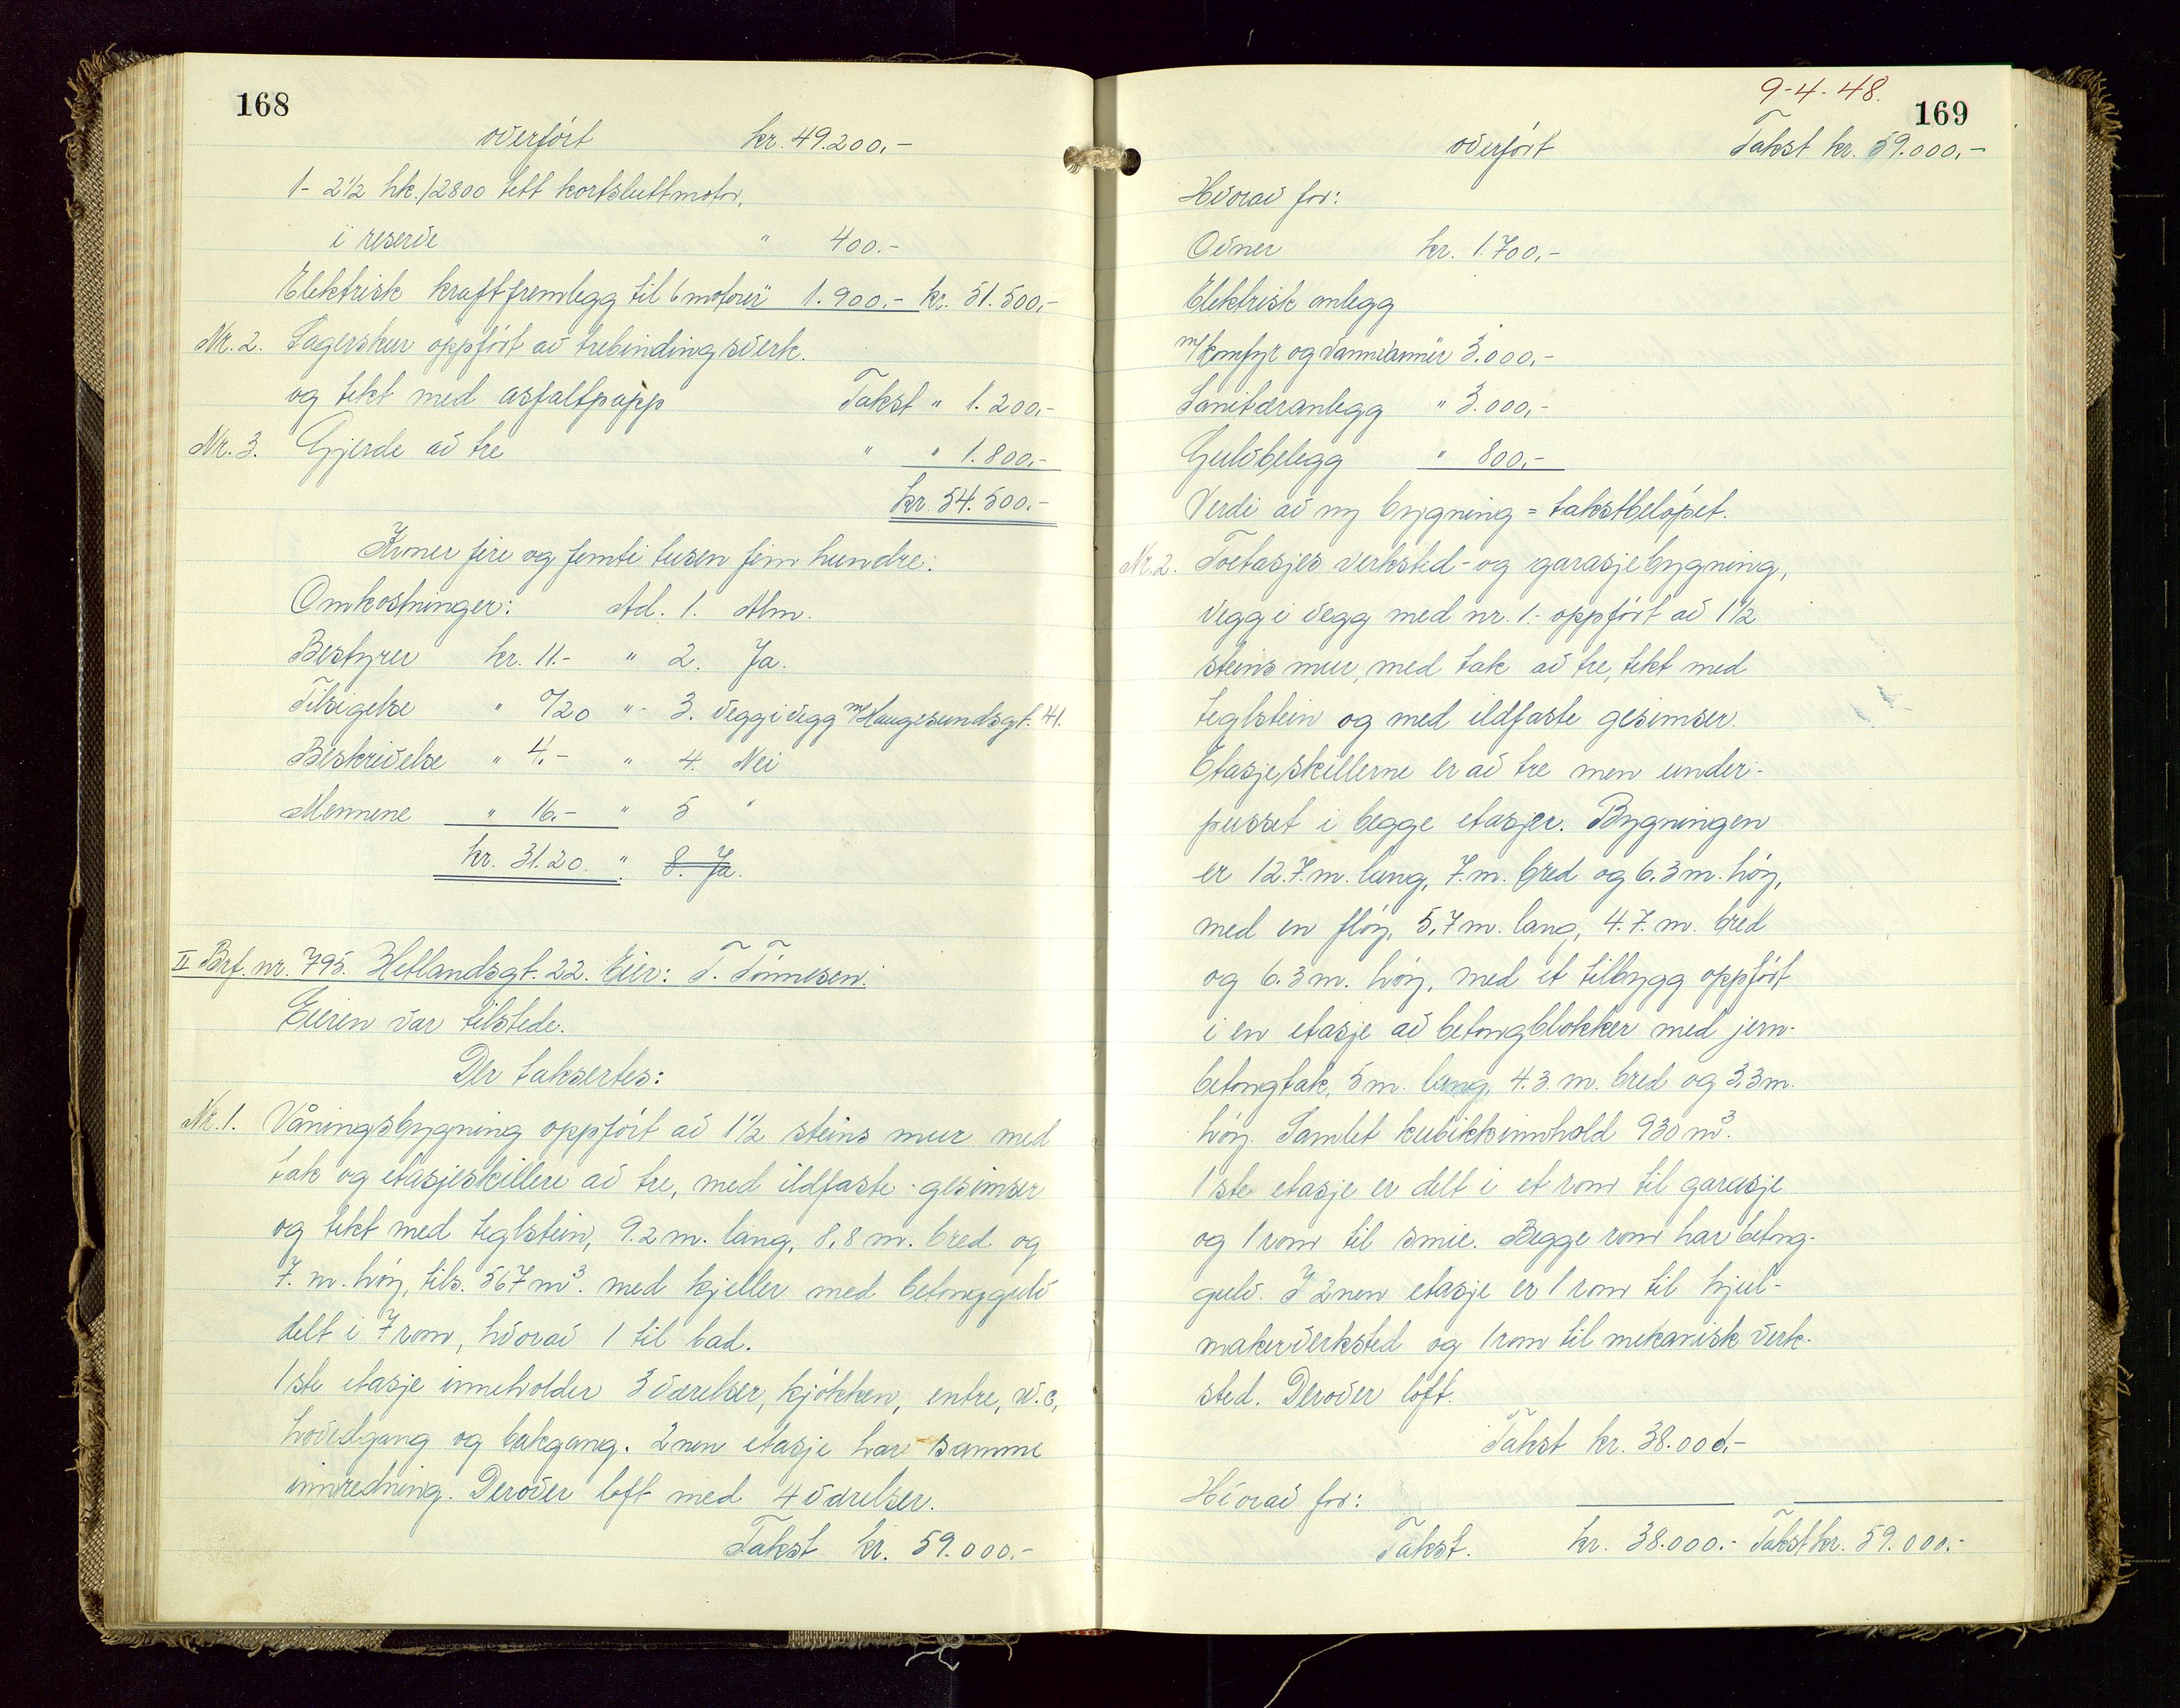 168
overført kr. 49.200,-
1- 2½ hk./2800 tett kortsluttmotor,
i reserve " 400.-
Elektrisk kraftfremlegg til 6 motorer " 1.900.- kr. 51.500,-
Nr. 2. Lagerskur oppført av trebindingsverk.
og tekt med asfaltpapp Takst " 1.200,-
Nr. 3. Gjerde av tre " " 1.800,-
kr. 54.500.-
Kroner fire og femti tusen fem hundre.
Omkostninger: Ad. 1. Alm.
Bestyrer kr. 11.- " 2. Ja.
Tilsigelse " 0/20 " 3. Vegg i vegg m/ Haugesundsgt. 41.
Beskrivelse " 4.- " 4. Nei
Mennene " 16.- " 5 "
kr. 31.20. " 8. Ja.
II Brf. nr. 795. Hetlandsgt. 22. Eier: T. Tönnesen.
Eieren var tilstede.
Der taksertes:
Nr. 1. Våningsbygning oppført av 1½ steins mur med
tak og etasjeskillere av tre, med ildfaste gesimser
og tekt med teglstein, 9.2 m. lang, 8,8 m. bred og
7. m. høy, tils. 567 m³. med kjeller med betonggulv
delt i 7 rom, hvorav 1 til bad.
1ste etasje inneholder 3 værelser, kjøkken, entre, w.c,
hovedgang og bakgang. 2nen etasje har samme
innredning. Derover loft med 4 værelser.
Takst kr. 59.000.-
9-4-48.
169
overført Takst kr. 59.000,-
Hvorav for:
Ovner kr. 1.700,-
Elektrisk anlegg
m/komfyr og vannvarmer 3.000,-
Sanitæranlegg " 3.000,-
Gulvbelegg " 800,-
Verdi av ny bygning = takstbeløpet.
Nr. 2. Toetasjes verksted- og garasjebygning,
vegg i vegg med nr. 1.- oppført av 1½
steins mur, med tak av tre, tekt med
teglstein og med ildfaste gesimser.
Etasjeskillerne er av tre men under-
pusset i begge etasjer. Bygningen
er 12.7. m. lang, 7. m. bred og 6.3 m. høy,
med en fløy, 5,7 m. lang, 4.7. m. bred
og 6.3 m. høy, med et tilbygg oppført
i en etasje av betongblokker med jern-
betongtak, 5 m. lang, 4.3 m. bred og 3,3 m.
høy. Samlet kubikkinnhold 930 m³.
1ste etasje er delt i et rom til garasje
og 1 rom til smie. Begge rom har betong-
gulv. I 2nen etasje er 1 rom til hjul-
makerverksted og 1 rom til mekanisk verk-
sted. Derover loft.
Takst kr. 38.000.-
Hvorav for:
Takst. kr. 38.000.- Takst kr. 59.000.-